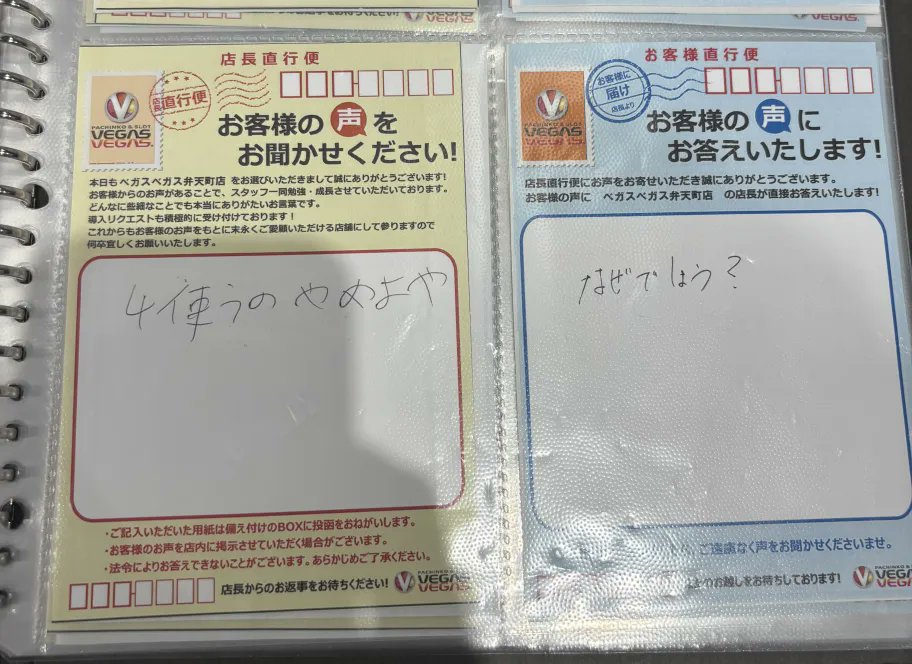 VEGAS
VEGAS.
店長直行便
店長
直行便
PACHINKO & SLOT
VEGAS
VEGAS.
お客様の声を
お聞かせください!
本日も ベガスベガス弁天町店 をお選びいただきまして誠にありがとうございます!
お客様からのお声があることで、スタッフ一同勉強・成長させていただいております。
どんなに些細なことでも本当にありがたいお言葉です。
導入リクエストも積極的に受け付けております!
これからもお客様のお声をもとに末永くご愛顧いただける店舗にして参りますので
何卒宜しくお願いいたします。
4使うのやめよや
・ご記入いただいた用紙は備え付けのBOXに投函をおねがいします。
・お客様のお声を店内に掲示させていただく場合がございます。
・法令によりお答えできないことがございます。あらかじめご了承ください。
店長からのお返事をお待ちください!
PACHINKO & SLOT
VEGAS
VEGAS.
お客様直行便
お客様に
届け
店長より
PACHINKO & SLOT
VEGAS
VEGAS.
お客様の声に
お答えいたします!
店長直行便にお声をお寄せいただき誠にありがとうございます。
お客様の声に ベガスベガス弁天町店 の店長が直接お答えいたします!
なぜでしょう?
ご遠慮なく声をお聞かせくださいませ。
のお越しをお待ちしております!